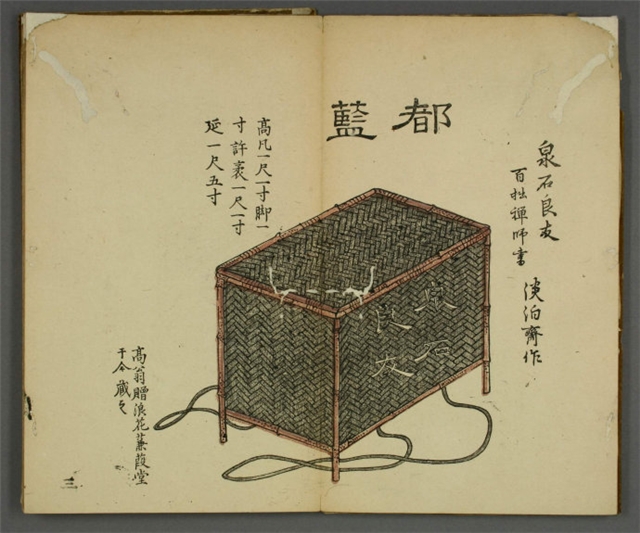 都藍
泉石良友
百拙禪師書
淡泊齊作
高凡一尺一寸脚一
寸許袤一尺一寸
延一尺五寸
泉石
良友
高翁贈浪花蒹葭堂
于今藏之
三